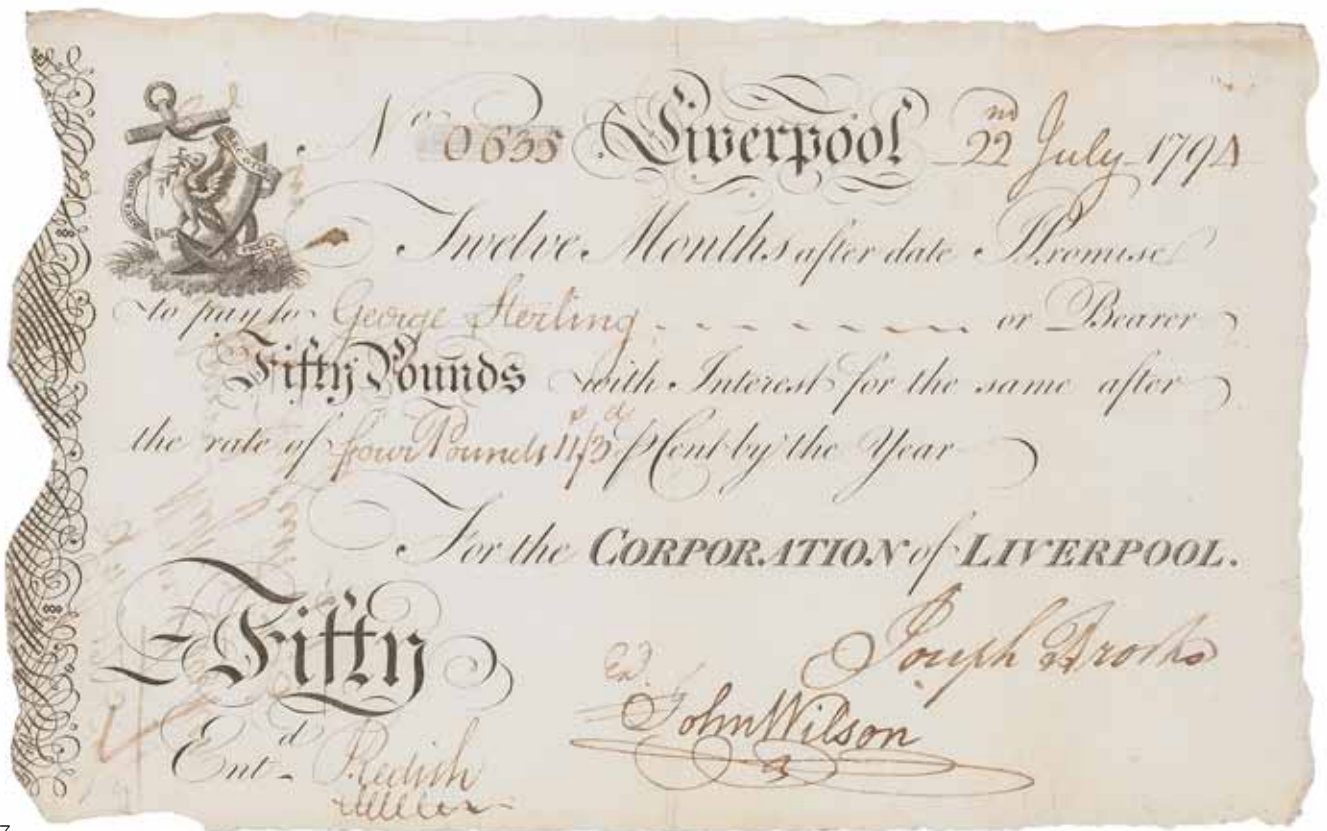 No 0635 Liverpool 22nd July 1794
Twelve Months after date I Promise
to pay to George Sterling or Bearer
Fifty Pounds with Interest for the same after
the rate of four Pounds 11s/3d p Cent by the Year
For the CORPORATION of LIVERPOOL.
Fifty
Joseph Brooks
Exd.
John Wilson
Entd
7